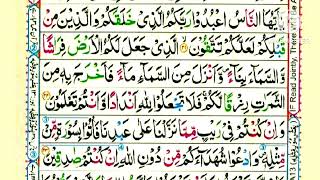 يٰٓاَيُّهَا النَّاسُ اعْبُدُوْا رَبَّكُمُ الَّذِيْ خَلَقَكُمْ وَالَّذِيْنَ مِنْ
قَبْلِكُمْ لَعَلَّكُمْ تَتَّقُوْنَ ﴿٢١﴾ الَّذِيْ جَعَلَ لَكُمُ الْاَرْضَ فِرَاشًا
وَّالسَّمَآءَ بِنَآءً ۪ وَّاَنْزَلَ مِنَ السَّمَآءِ مَآءً فَاَخْرَجَ بِهٖ مِنَ
الثَّمَرٰتِ رِزْقًا لَّكُمْ ۚ فَلَا تَجْعَلُوْا لِلّٰهِ اَنْدَادًا وَّاَنْتُمْ تَعْلَمُوْنَ ﴿٢٢﴾
وَاِنْ كُنْتُمْ فِيْ رَيْبٍ مِّمَّا نَزَّلْنَا عَلٰى عَبْدِنَا فَاْتُوْا بِسُوْرَةٍ مِّنْ
مِّثْلِهٖ ۪ وَادْعُوْا شُهَدَآءَكُمْ مِّنْ دُوْنِ اللّٰهِ اِنْ كُنْتُمْ صٰدِقِيْنَ ﴿٢٣﴾